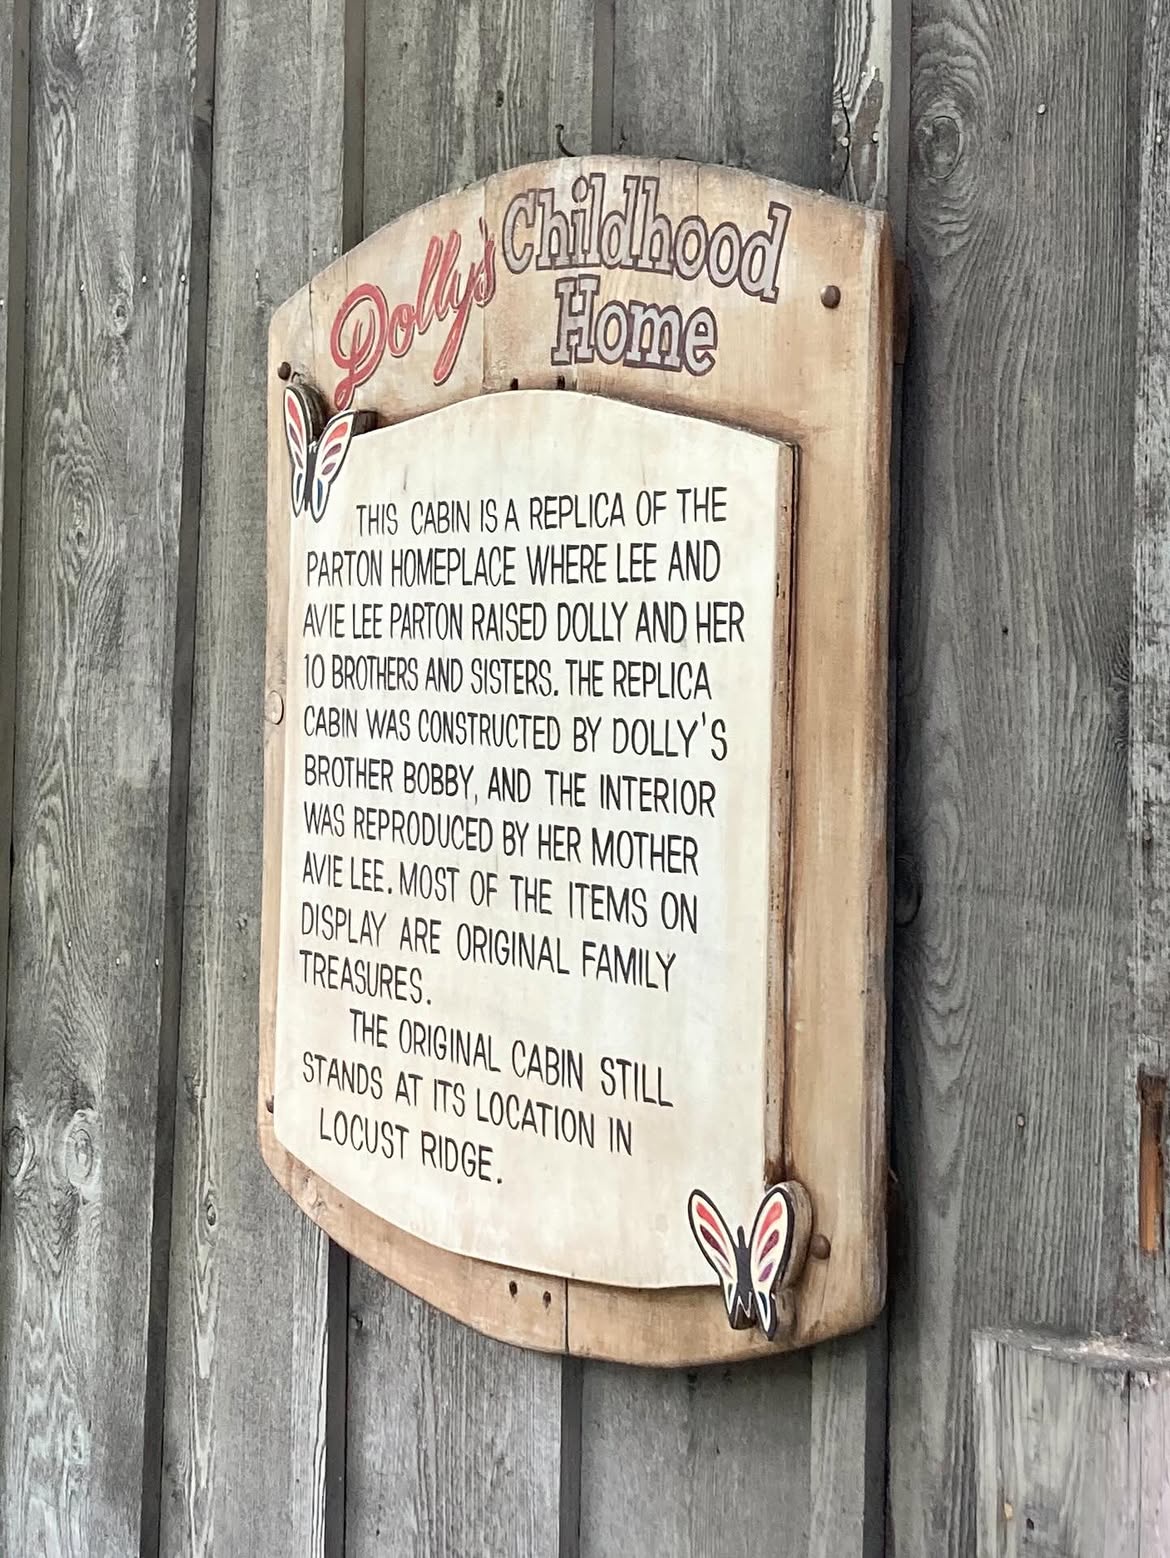 Dolly's Childhood
Home
THIS CABIN IS A REPLICA OF THE
PARTON HOMEPLACE WHERE LEE AND
AVIE LEE PARTON RAISED DOLLY AND HER
10 BROTHERS AND SISTERS. THE REPLICA
CABIN WAS CONSTRUCTED BY DOLLY'S
BROTHER BOBBY, AND THE INTERIOR
WAS REPRODUCED BY HER MOTHER
AVIE LEE. MOST OF THE ITEMS ON
DISPLAY ARE ORIGINAL FAMILY
TREASURES.
THE ORIGINAL CABIN STILL
STANDS AT ITS LOCATION IN
LOCUST RIDGE.